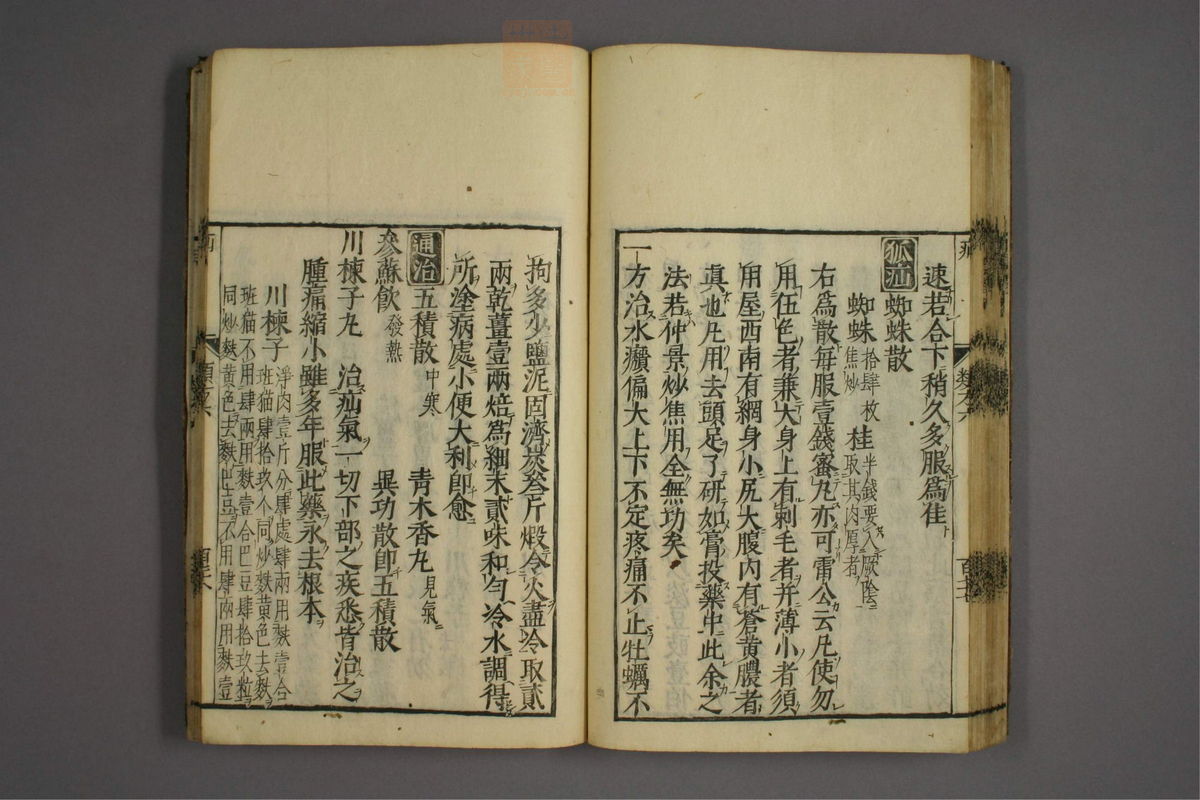 速若合下稍久多服爲佳
狐疝
蜘蛛散
蜘蛛 拾肆枚 焦炒 桂 半錢要入厥陰 取其肉厚者
右爲散每服壹錢蜜丸亦可雷公云凡使勿
用伍色者兼大身上有刺毛者并薄小者須
用屋西南有網身小尻大腹內有蒼黃膿者
眞也凡用去頭足了研如膏投藥中此余之
法若仲景炒焦用全無功矣
一方治水㿗偏大上下不定疼痛不止牡蠣不
拘多少鹽泥固濟炭叄斤煅令火盡冷取貳
兩乾薑壹兩焙爲細末貳味和勻冷水調得
所塗病處小便大利卽愈
通治
五積散 中寒 青木香丸 見氣
參蘇飲 發熱 異功散卽五積散
川楝子丸 治疝氣一切下部之疾悉皆治之
腫痛縮小雖多年服此藥永去根本
川楝子 淨肉壹斤分肆處肆兩用麩壹合
班猫肆拾玖个同炒麩黃色去麩
班猫不用肆兩用麩壹合巴豆肆拾玖粒
同炒麩黃色去麩巴豆不用肆兩用麩壹